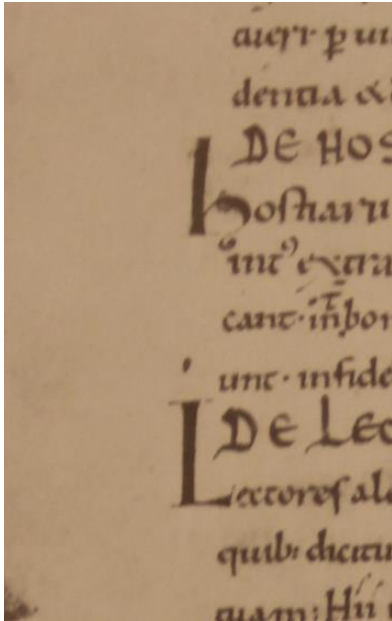 dentia &
DE HOS
hostiaru
int⁹ extra
cant · int̄ bon
unt · infide
DE LEC
Lectores ale
quib: dicitu
tuam; Hii